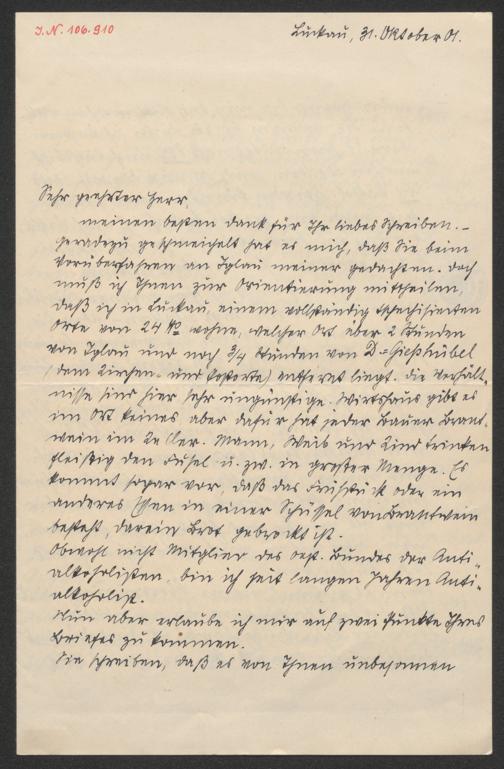 J.N. 106.910
Luckau, 31. Oktober 01.
Sehr geehrter Herr,
meinen besten Dank für Ihr liebes Schreiben. –
Geradezu geschmeichelt hat es mich, daß Sie beim
Vorüberfahren an Iglau meiner gedachten. Doch
muß ich Ihnen zur Orientierung mittheilen,
daß ich in Luckau, einem vollständig tschechisierten
Orte von 24 No wohne, welcher Ort über 2 Stunden
von Iglau und noch 3/4 Stunden von D=Gießhübel
(dem Kirchen- und Postorte) entfernt liegt. Die Verhält-
nisse sind hier sehr ungünstige. Wirtshaus gibt es
im Ort keines aber dafür hat jeder Bauer Brant-
wein im Keller. Mann, Weib und Kind trinken
fleißig den Fusel u. zw. in großer Menge. Es
kommt sogar vor, daß das Frühstück oder ein
anderes Essen in einer Schüssel von Brantwein
besteht, darein Brot gebrockt ist.
Obwohl nicht Mitglied des oest. Bundes der Anti-
alkoholisten, bin ich seit langen Jahren Anti-
alkoholist.
Nun aber erlaube ich mir auf zwei Punkte Ihres
Briefes zu kommen.
Sie schreiben, daß es von Ihnen unbesonnen